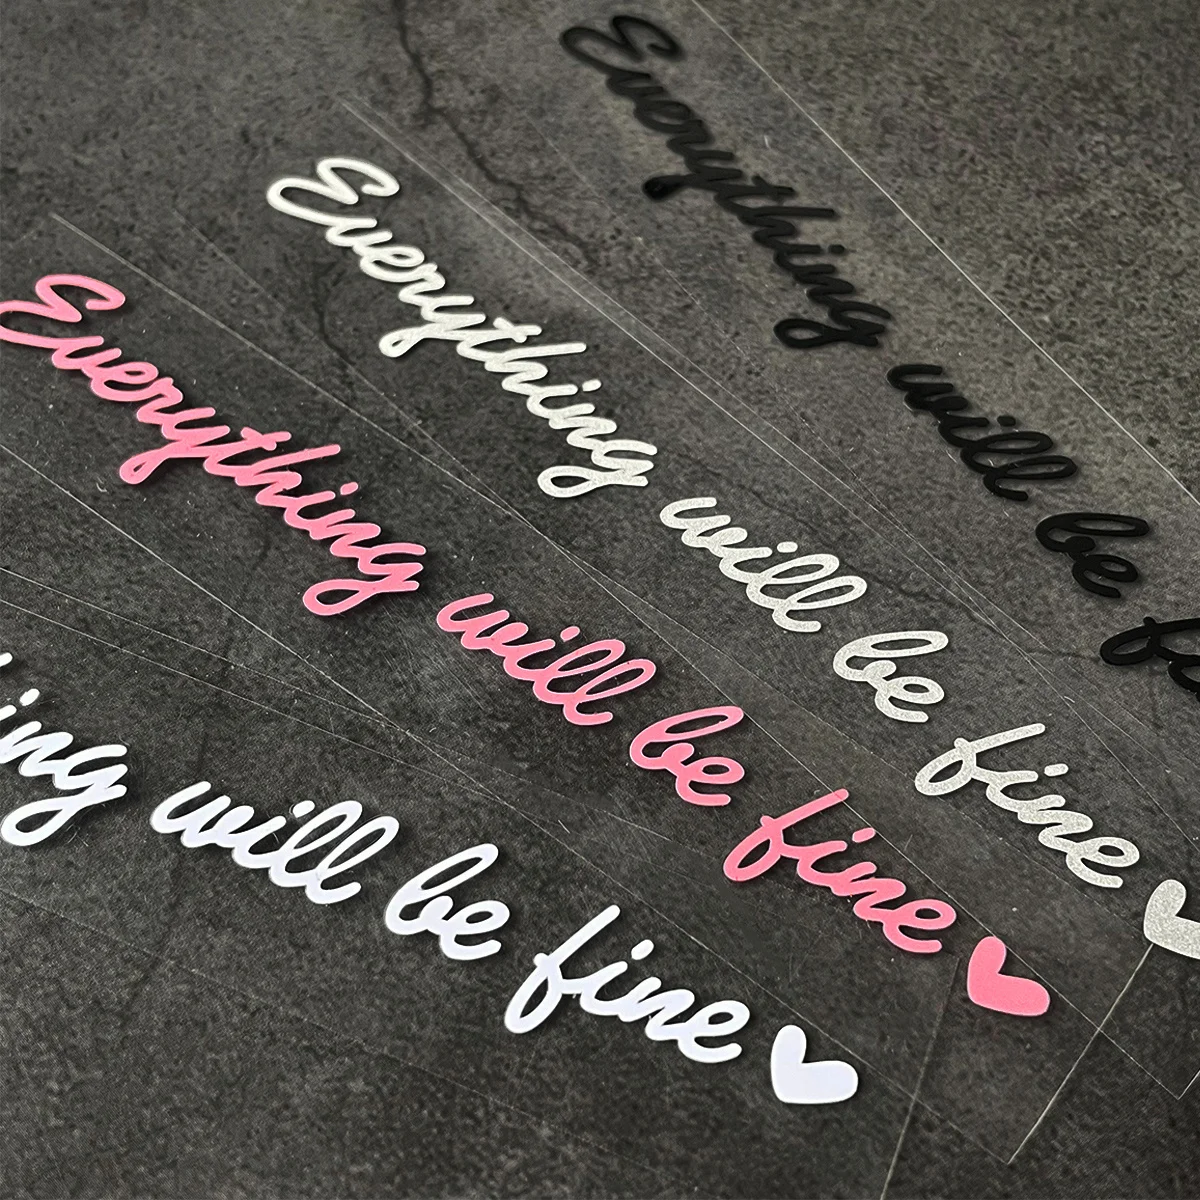 Everything will be
Everything will be fine
Everything will be fine
will be fine